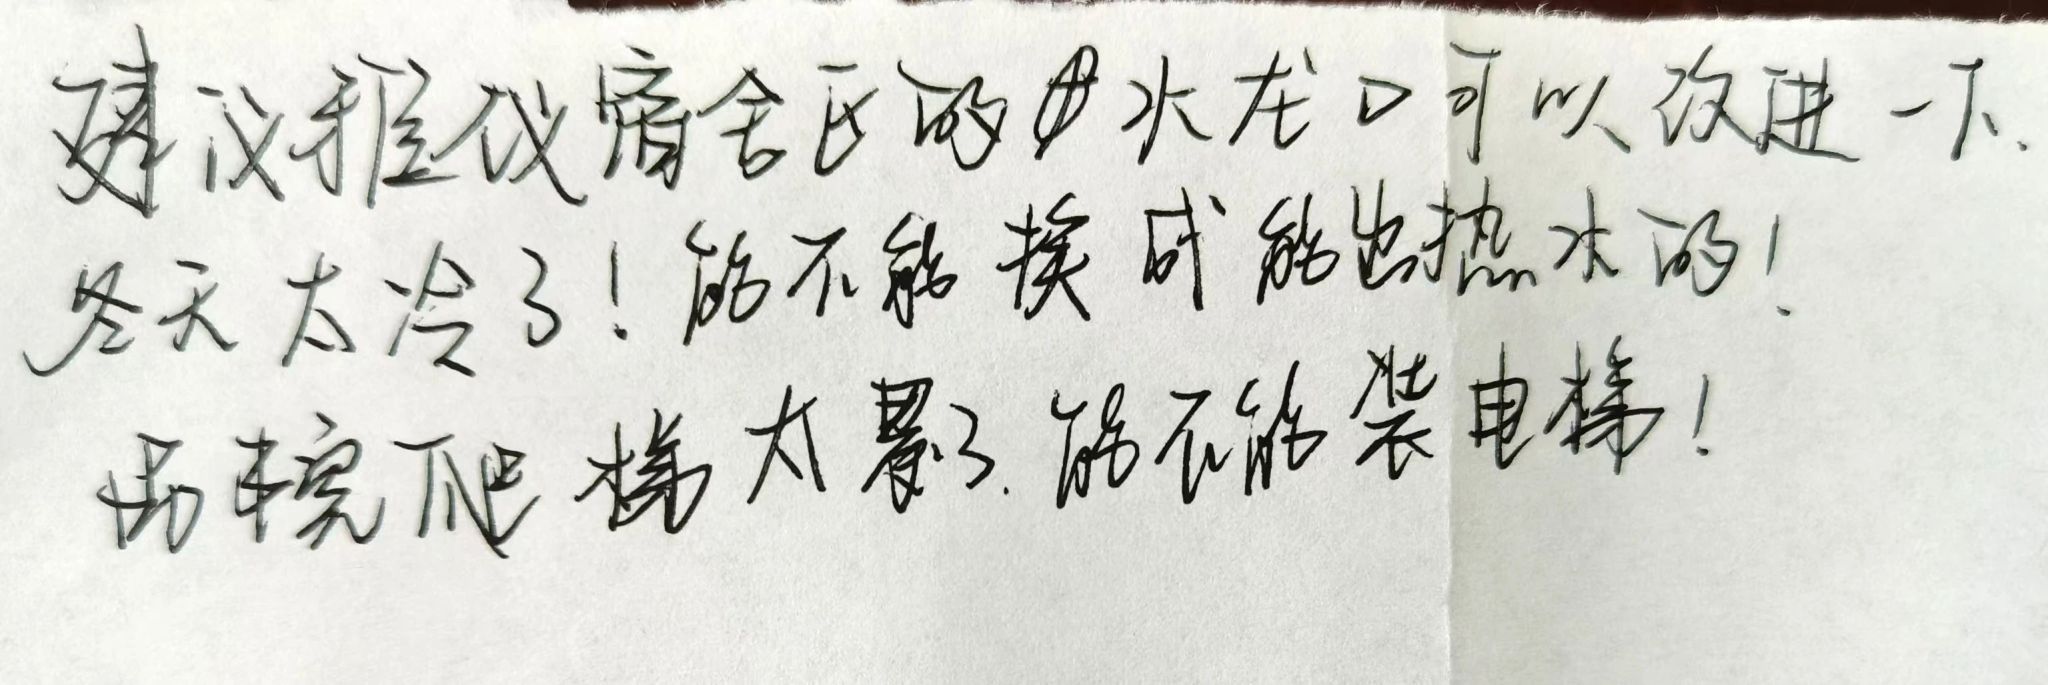 建议雅仪宿舍区的水龙口可以改进一下.
冬天太冷了!能不能换成能出热水的!
南楼爬梯太累了.能不能装电梯!